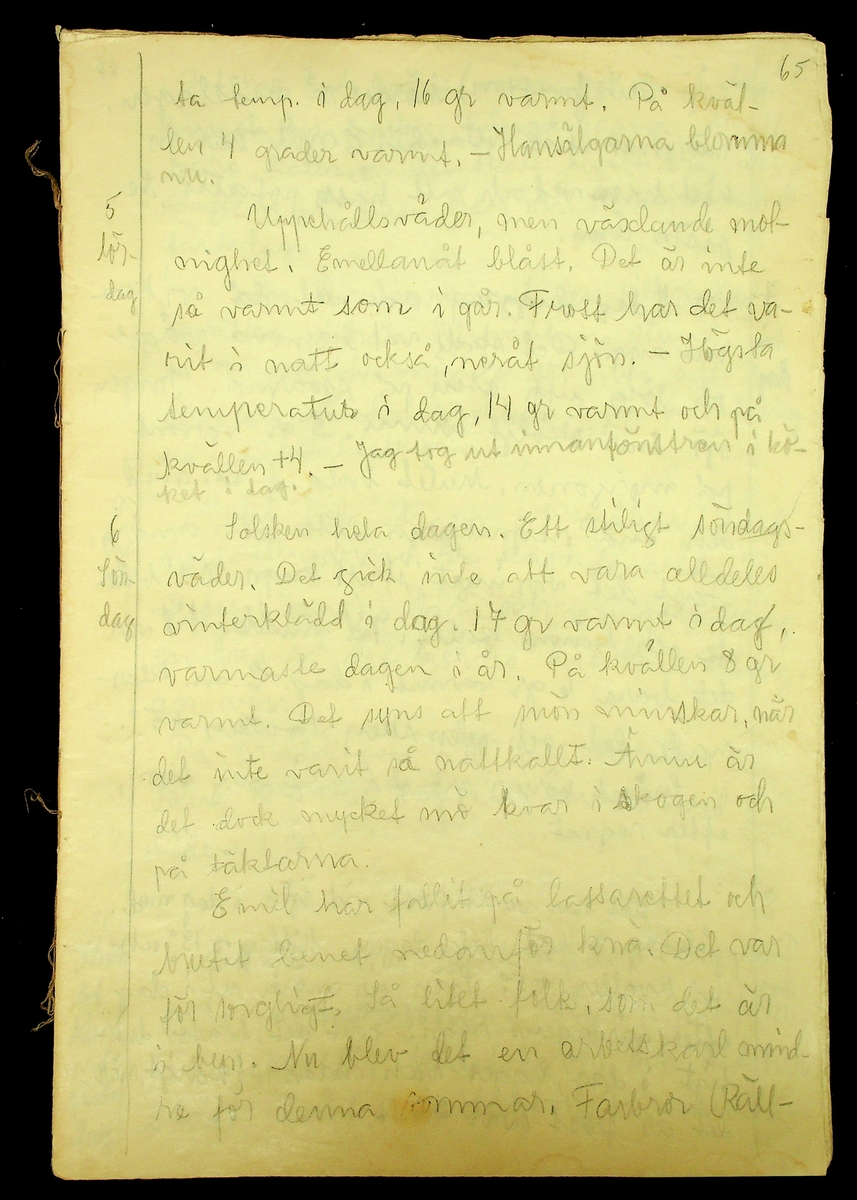 65
ta temp. i dag, 16 gr varmt. På kväl-
len 4 grader varmt. – Hansälgarna blomma
nu.
5
lör-
dag
Uppehållsväder, men växlande mol-
nighet. Emellanåt blåst. Det är inte
så varmt som i går. Frost har det va-
rit i natt också, neråt sjön. – Högsta
temperatur i dag, 14 gr varmt och på
kvällen +4. – Jag tog ut innanfönstren i kö-
ket i dag.
6
Sön-
dag
Solsken hela dagen. Ett stiligt söndags-
väder. Det gick inte att vara alldeles
vinterklädd i dag. 17 gr varmt i dag,
varmaste dagen i år. På kvällen 8 gr
varmt. Det syns att snön minskar, när
det inte varit så nattkallt. Ännu är
det dock mycket snö kvar i skogen och
på täkterna.
Emil har fallit på lassarettet och
brutit benet nedanför knä. Det var
för sorgligt. Så litet folk, som det är
i byn. Nu blev det en arbetskarl mind-
re för denna sommar. Farbror (Räll-